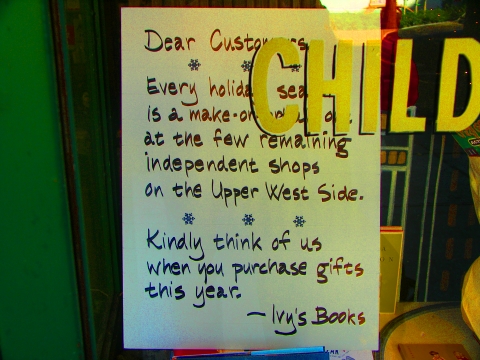 Dear Customers,
Every holiday season
is a make-or-
at the few remaining
independent shops
on the Upper West Side.
Kindly think of us
when you purchase gifts
this year.
— Ivy's Books
CHILD